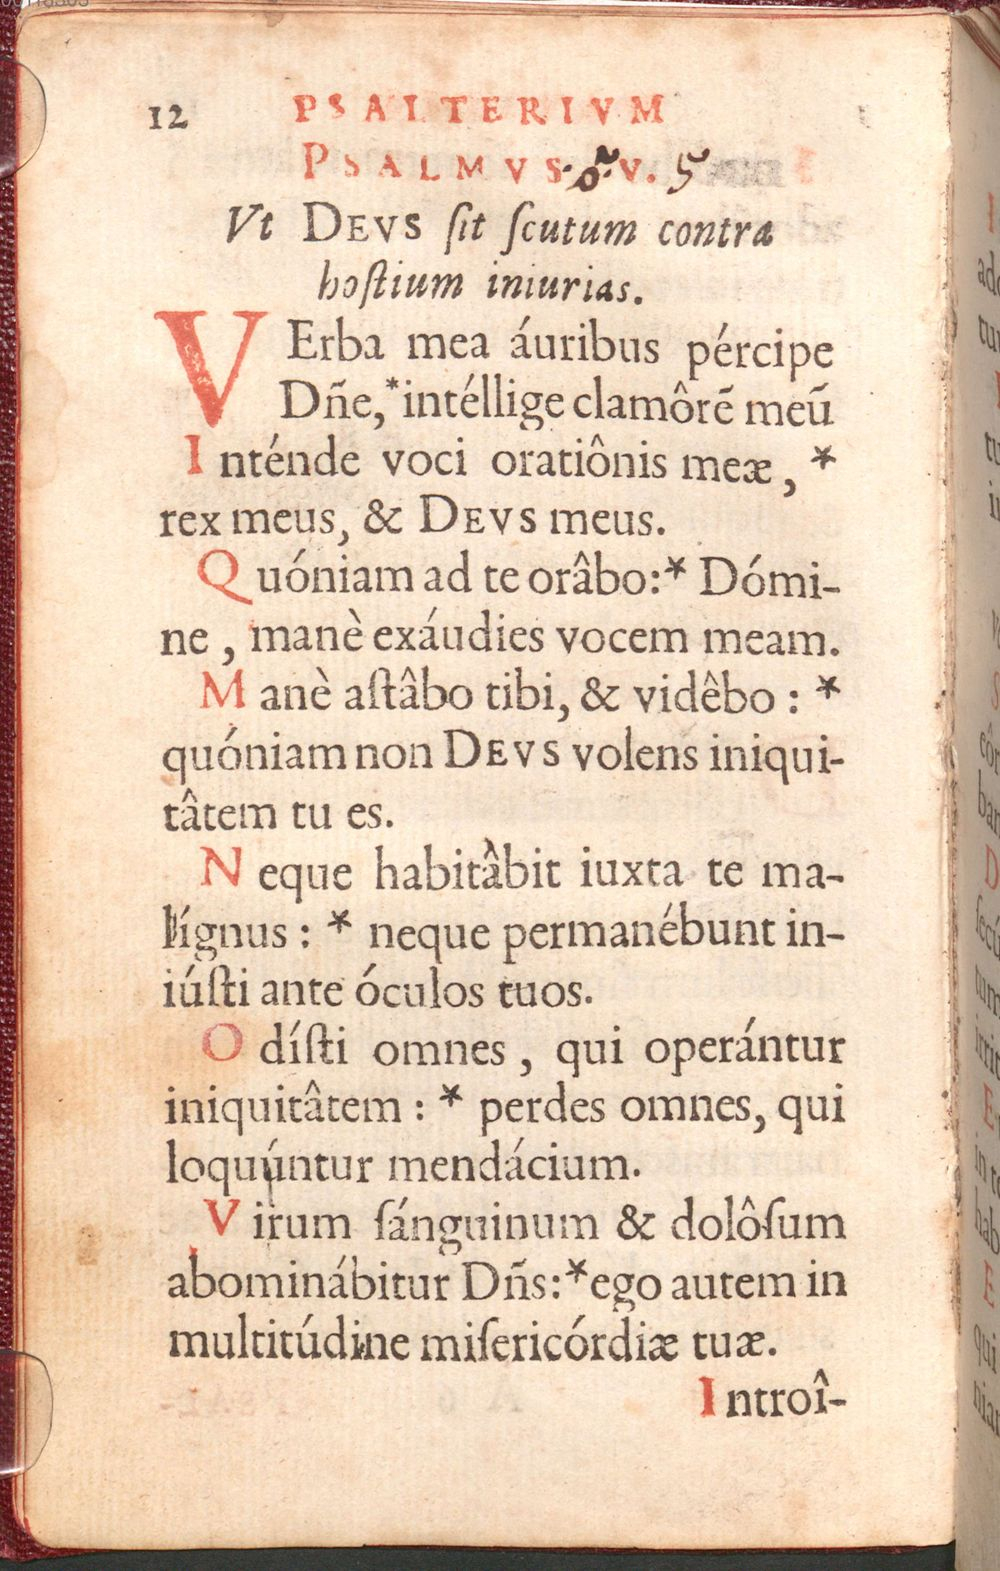 12 PSALTERIVM
PSALMVS V. 5
Vt DEVS ſit ſcutum contra
hoſtium iniurias.
VErba mea áuribus pércipe
Dñe,* intéllige clamôrẽ meũ
Inténde voci oratiônis meæ, *
rex meus, & DEVS meus.
Quóniam ad te orâbo:* Dómi-
ne, manè exáudies vocem meam.
Manè aſtâbo tibi, & vidêbo : *
quóniam non DEVS volens iniqui-
tâtem tu es.
Neque habitâbit iuxta te ma-
lígnus : * neque permanébunt in-
iúſti ante óculos tuos.
Odíſti omnes, qui operántur
iniquitâtem : * perdes omnes, qui
loquúntur mendácium.
Virum ſánguinum & dolôſum
abominábitur Dñs:* ego autem in
multitúdine miſericórdiæ tuæ.
Introî-